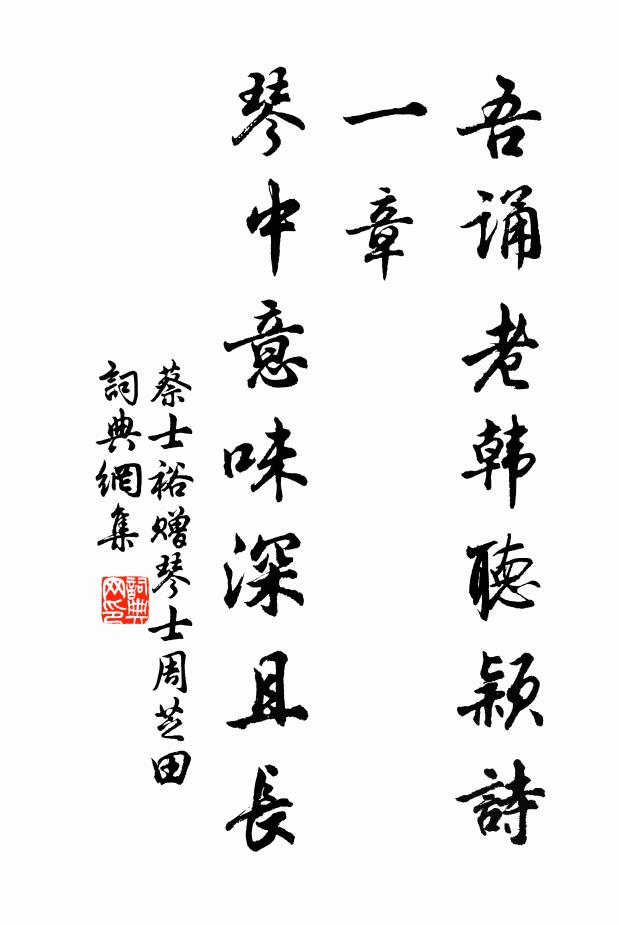 吾诵老韩聽颖詩
一章
琴中意味深且長
蔡士裕赠琴士周芝田
詞典網集
詞典
网印